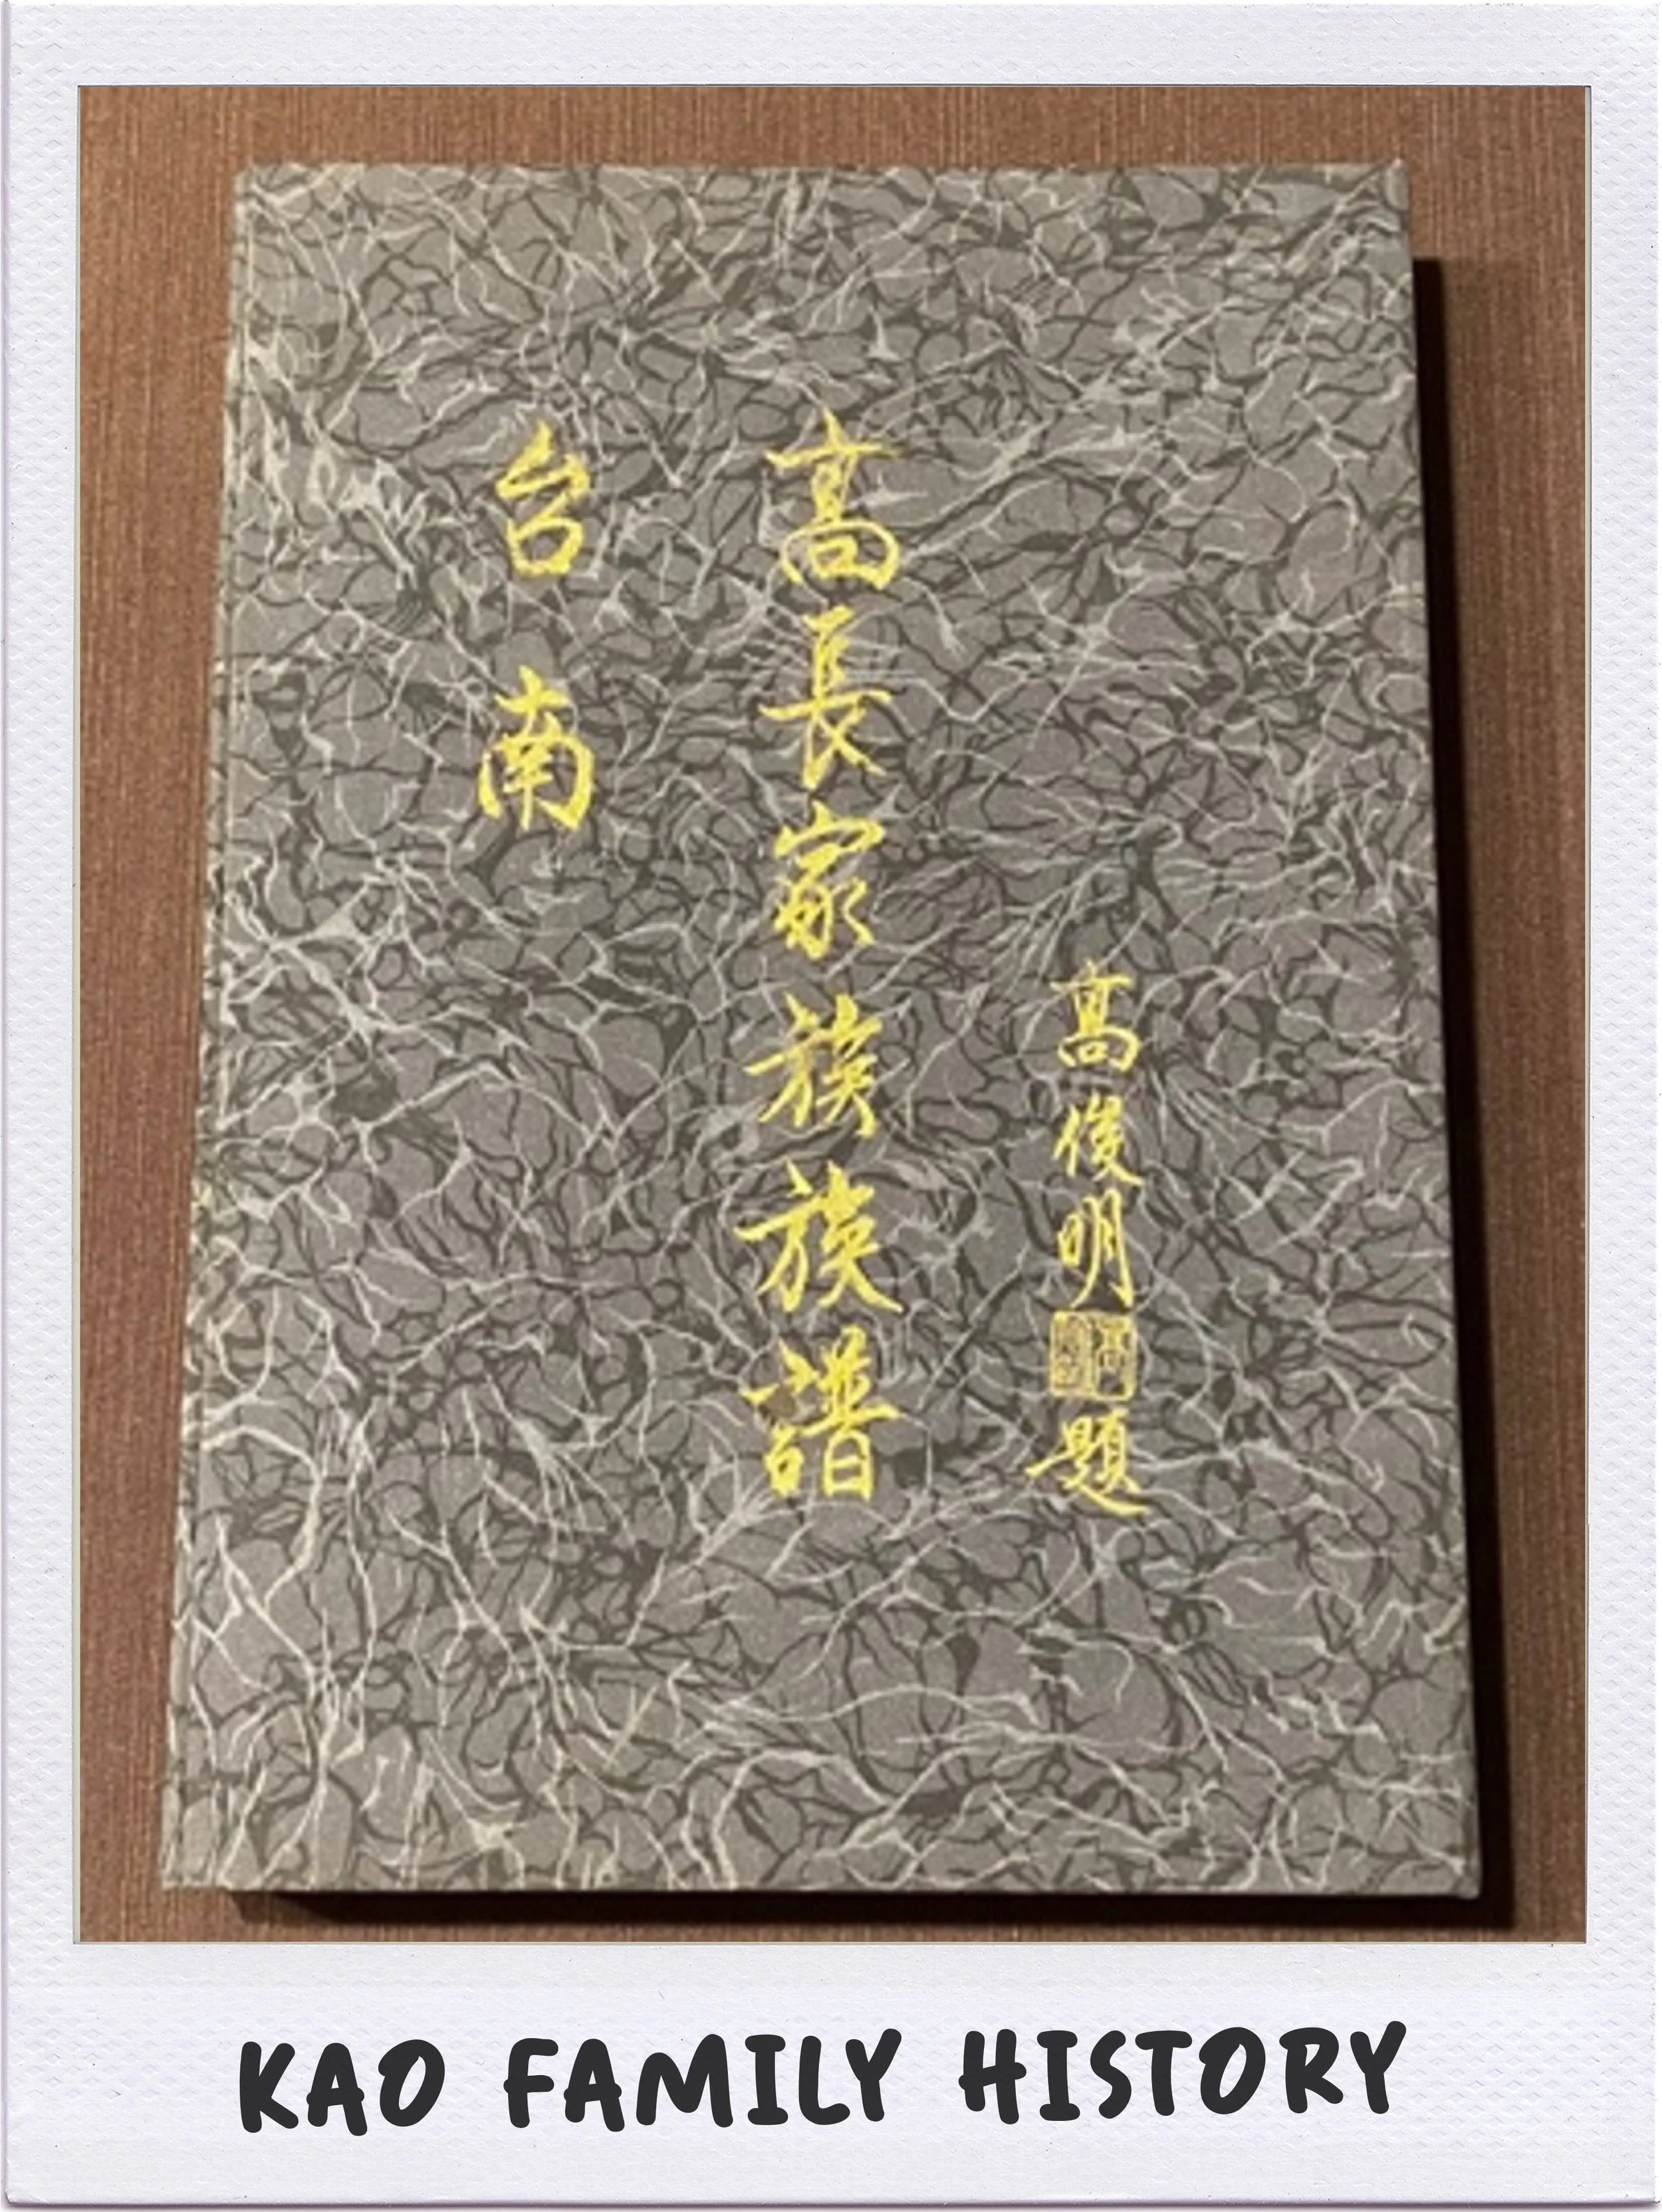 台南
高長家族族譜
高俊明題
KAO FAMILY HISTORY